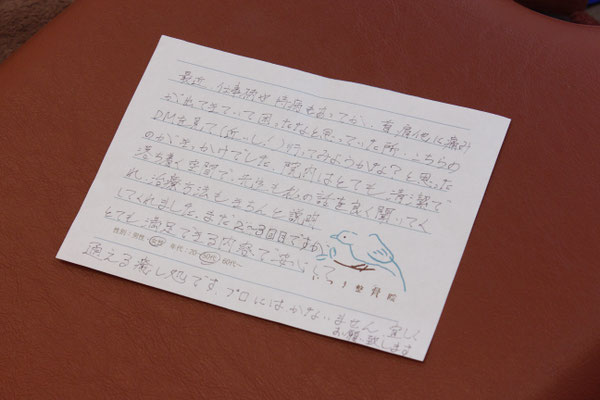 最近、仕事疲や頭痛もあってか、首・肩他に痛み
が出てきていて困ったなと思っていた所、こちらの
DMを見て(近いし)行ってみようかな?と思った
のがきっかけでした。院内はとても清潔で
落ち着く空間で、先生も私の話を良く聞いてく
れ、治療方法もきちんと説明
してくれました。まだ2〜3回目ですが
とても満足できる内容で安心して
性別:男性・女性 年代:20・ 60代〜
整骨院
通える癒し処です。プロにはかないません。宜しく
お願い致します